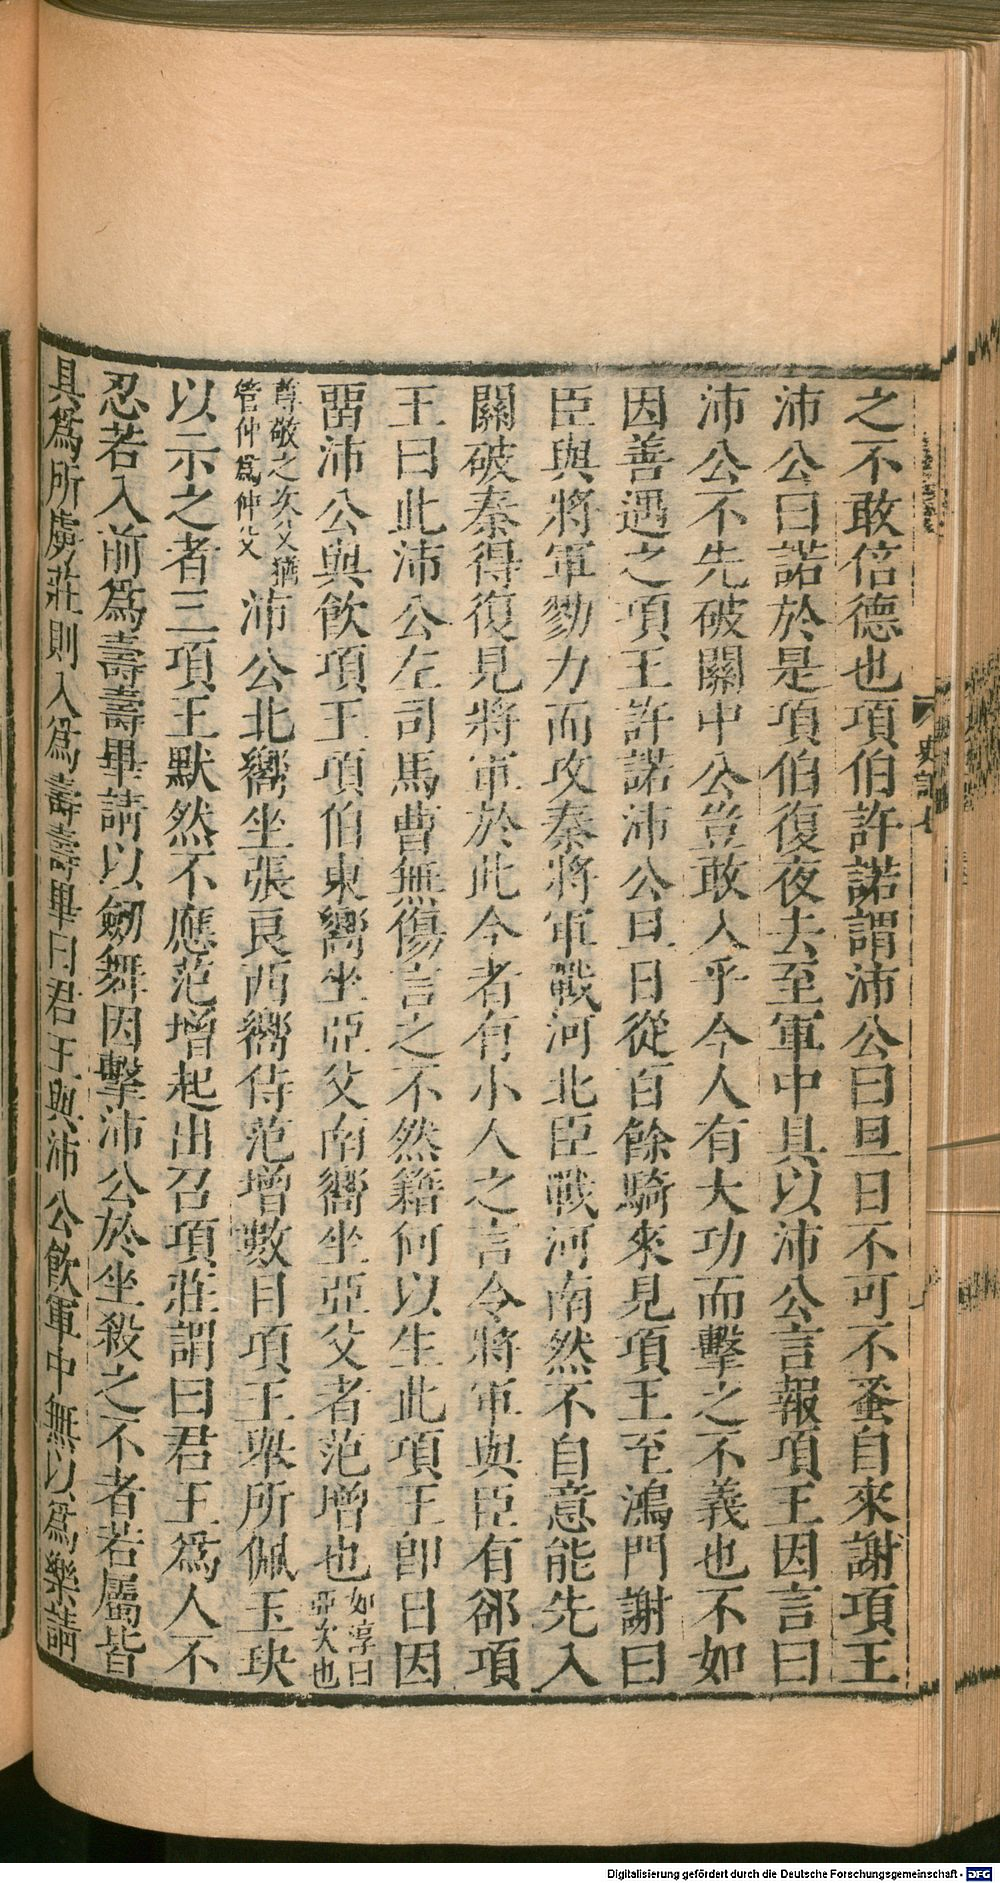 之不敢倍德也項伯許諾謂沛公曰旦日不可不蚤自來謝項王
沛公曰諾於是項伯復夜去至軍中具以沛公言報項王因言曰
沛公不先破關中公豈敢入乎今人有大功而擊之不義也不如
因善遇之項王許諾沛公旦日從百餘騎來見項王至鴻門謝曰
臣與將軍勠力而攻秦將軍戰河北臣戰河南然不自意能先入
關破秦得復見將軍於此今者有小人之言令將軍與臣有郤項
王曰此沛公左司馬曹無傷言之不然籍何以生此項王卽日因
畱沛公與飮項王項伯東嚮坐亞父南嚮坐亞父者范增也如淳曰亞次也
尊敬之次父猶管仲爲仲父沛公北嚮坐張良西嚮侍范增數目項王舉所佩玉玦
以示之者三項王默然不應范增起出召項莊謂曰君王爲人不
忍若入前爲壽壽畢請以劒舞因擊沛公於坐殺之不者若屬皆
具爲所虜莊則入爲壽壽畢曰君王與沛公飮軍中無以爲樂請
史記七
Digitalisierung gefördert durch die Deutsche Forschungsgemeinschaft - DFG